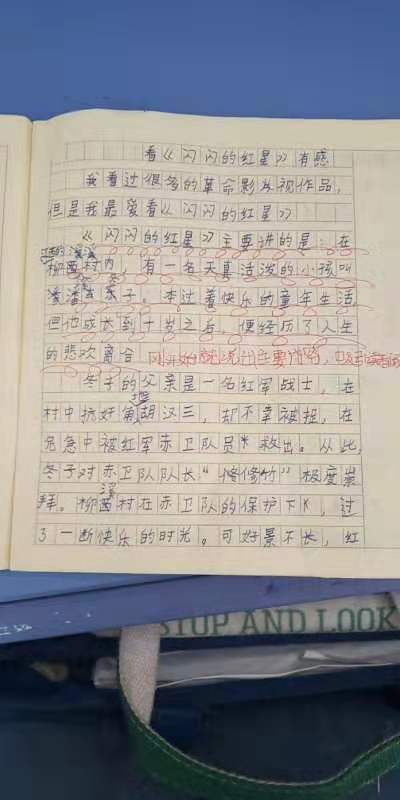 看《闪闪的红星》有感
我看过很多的革命影视作品,
但是我最爱看《闪闪的红星》
《闪闪的红星》主要讲的是:在
柳茵村内,有一名天真活泼的小孩叫
潘冬子。本过着快乐的童年生活,
但他成长到十岁之后,便经历了人生
的悲欢离合
冬子的父亲是一名红军战士,在
村中抗奸 胡汉三,却不幸被捉,在
危急中被红军赤卫队员 救出。从此,
冬子对赤卫队队长"修竹"极度崇
溪
拜。柳茵村在赤卫队的保护下,过
了一断快乐的时光。可好景不长,红
STOP AND LOOK